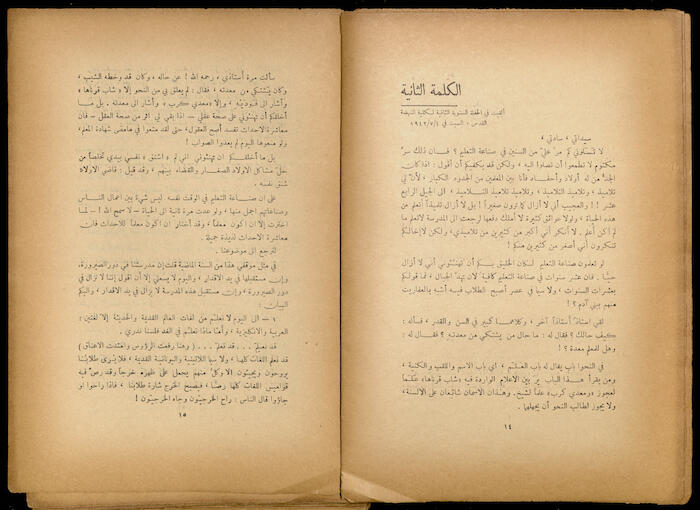 الكلمة الثانية
ألقيت في الحفلة السنوية الثانية لكلية النهضة
القدس، السبت في ١٩٤٢/٧/٤
سيداتي، سادتي،
لا تسألوني كم مر عليّ من السنين في صناعة التعليم؟ فان ذلك سرّ
مكتوم لا تطمعوا أن تصلوا اليه، ولكن قد يكفيكم أن أقول: اذا كان
الجدّ من له أولاد وأحفاد فأنا بين المعلمين من الجدود الكبار، لأن لي
تلاميذ، وتلاميذ التلاميذ، وتلاميذ تلاميذ التلاميذ، الى الجيل الرابع
عشر!!! والعجيب أني لا أزال كا ترون صغيراً! بل لا أزال تلميذاً أتعلم من
هذه الحياة، ولولا عوائق كثيرة لا أملك دفعها لرجعت الى المدرسة لأتعلم ما
لم أكن أعلم. لا أنكر أني أكبر من كثيرين من تلاميذي، ولكن لا إخالكم
تنكرون أني أصغر من كثيرين منكم!
لو تعلمون صناعة التعليم لكان الخليق بكم أن تهنئوني أني لا أزال
حيّاً. فان عشر سنوات في صناعة التعليم كافية لأن تهدّ الجبال، فما قولكم
بعشرات السنوات، ولا سيما في عصر أصبح الطلاب فيه أشبه بالعفاريت
منهم ببني آدم؟!
لقي استاذ أستاذاً آخر، وكلاهما كبير في السن والقدر، فسأله:
كيف حالك؟ فقال له: ما حال من يشتكي من معدته؟ فقال له:
وهل لمعلم معدة؟!
في النحو باب يقال له باب العَلَم، أي باب الاسم واللقب والكنية،
ومن يقرأ هذا الباب يرَ بين الاعلام الواردة فيه «شاب قرناها» علَماً
لعجوز، و«معدي كرب» علماً لشيخ. وهذان الاسمان شائعان على الالسنة،
ولا يجوز لطالب النحو أن يجهلها.
١٤
سألت مرة أستاذي، رحمه الله! عن حاله، وكان قد وخطه الشيب،
وكان يشتكي من معدته، فقال: لم يعلق بي من النحو إلا «شاب قرناها»
وأشار الى فَوديه، وإلا «معدي كرب» وأشار الى معدته. بل ما
أخلقكم أن تهنئوني على صحة عقلي - اذا بقي لي اثر من صحة العقل - فان
معاشرة الاحداث تفسد أصح العقول، حتى لقد منعوا في ماضي شهادة المعلم،
ولو منعوها اليوم لم يعدوا الصواب!
بل ما أخلقكم ان تهنئوني اني لم أشنق نفسي بيدي تخلّصاً من
حلّ مشاكل الاولاد الصغار والقضاء بينهم، وقد قيل: قاضي الاولاد
شنق نفسه.
على ان صناعة التعليم في الوقت نفسه. ليس شيء بين اعمال الناس
وصناعاتهم اجمل منها، ولو عدت مرة ثانية الى الحياة - لا سمح الله! - لما
اخترت إلا ان اكون معلماً، وقد أختار ان اكون معلماً للأحداث فان
معاشرة الاحداث لذيذة جميلة.
لنرجع الى موضوعنا.
في مثل موقفي هذا من السنة الماضية قلت إن مدرستنا في دور الصيرورة،
وإن مستقبلها في يد الاقدار، واليوم لا يسعني إلا أن اقول إننا لا نزال في
دور الصيرورة، وإن مستقبل هذه المدرسة لا يزال في يد الاقدار، واليكم
البيان:
١ - الى اليوم لا نعلّم من لغات العالم القديمة والحديثة إلا لغتين:
العربية والانكليزية، وأمّا ماذا نعلّم في الغد فلسنا ندري.
قد نعلّم ... قد نعلّم ... (وهنا رفعت الرؤوس وامتدت الاعناق)
قد نعلم اللغات كلها، ولا سيما اللاتينية واليونانية القديمة، فلا يُرى طلابنا
يروحون ويجيئون الا وكلّ منهم يحمل على ظهره خرجاً وقد رصّ فيه
قواميس اللغات كلها رصّاً، فيصبح الخرج شارة طلابنا، فاذا راحوا او
جاؤوا قال الناس: راح الخرجيّون وجاء الخرجيّون!
١٥